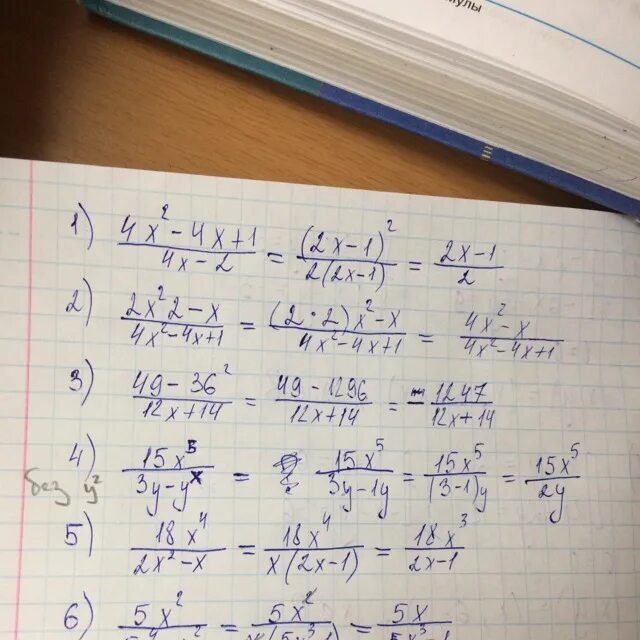 мулы
1) (4x² - 4x + 1)/(4x - 2) = (2x - 1)²/(2(2x - 1)) = (2x - 1)/2
2) (2x² 2 - x)/(4x² - 4x + 1) = ((2 · 2)x² - x)/(4x² - 4x + 1) = (4x² - x)/(4x² - 4x + 1)
3) (49 - 36²)/(12x + 14) = (49 - 1296)/(12x + 14) = - 1247/(12x + 14)
4) 15x⁵/(3y - y) = 15x⁵/(3y - 1y) = 15x⁵/((3 - 1)y) = 15x⁵/(2y)
без y²
5) 18x⁴/(2x² - x) = 18x⁴/(x(2x - 1)) = 18x³/(2x - 1)
6) 5x² = 5x² = 5x